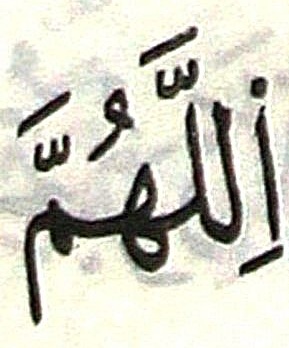 اَِللّٰهُمَّ